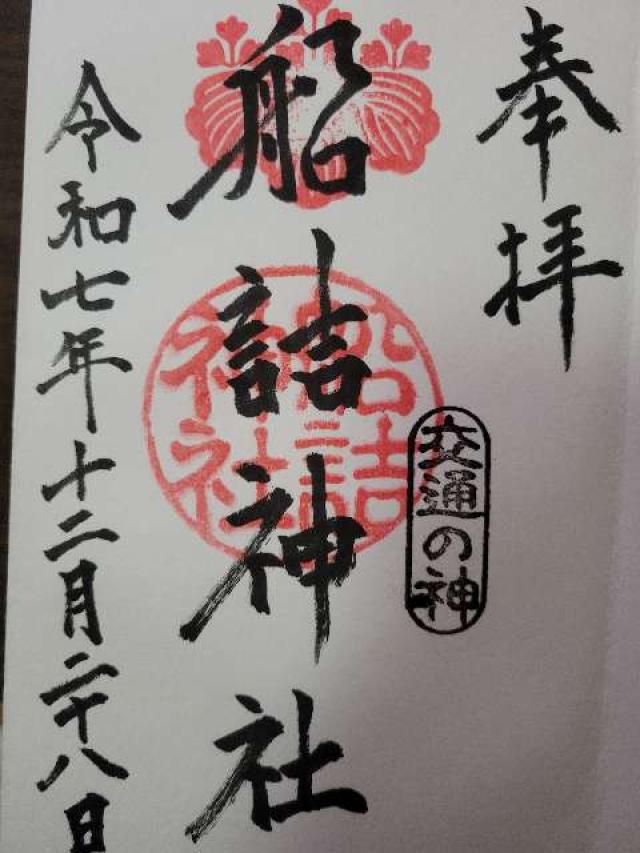 奉拝
交通の神
船詰神社
船詰神社
令和七年十二月二十八日